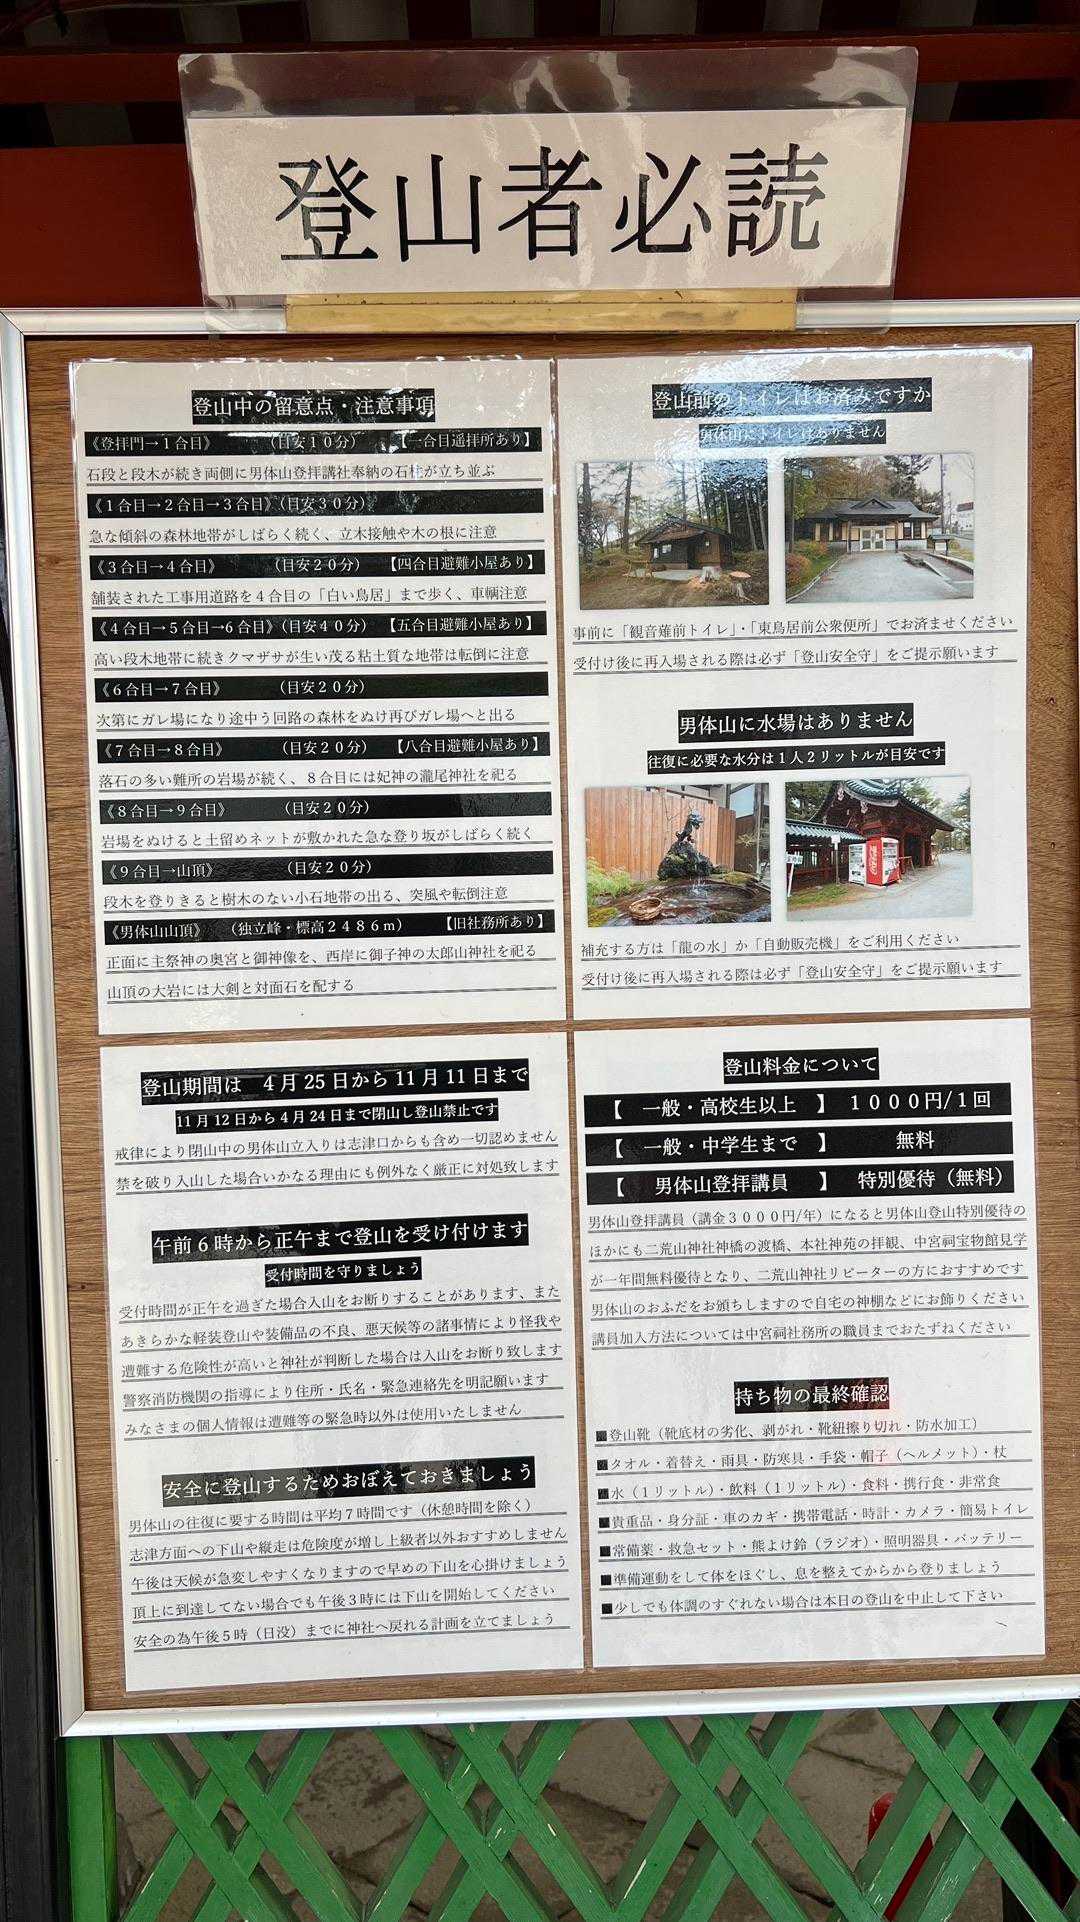 登山者必読
登山中の留意点・注意事項
《登拝門→1合目》 （目安１０分） 【一合目遥拝所あり】
石段と段木が続き両側に男体山登拝講社奉納の石柱が立ち並ぶ
《1合目→2合目→3合目》（目安３０分）
急な傾斜の森林地帯がしばらく続く、立木接触や木の根に注意
《３合目→４合目》 （目安２０分） 【四合目避難小屋あり】
舗装された工事用道路を４合目の「白い鳥居」まで歩く、車輌注意
《４合目→５合目→6合目》（目安４０分） 【五合目避難小屋あり】
高い段木地帯に続きクマザサが生い茂る粘土質な地帯は転倒に注意
《６合目→７合目》 （目安２０分）
次第にガレ場になり途中う回路の森林をぬけ再びガレ場へと出る
《７合目→８合目》 （目安２０分） 【八合目避難小屋あり】
落石の多い難所の岩場が続く、８合目には妃神の瀧尾神社を祀る
《８合目→９合目》 （目安２０分）
岩場をぬけると土留めネットが敷かれた急な登り坂がしばらく続く
《９合目→山頂》 （目安２０分）
段木を登りきると樹木のない小石地帯の出る、突風や転倒注意
《男体山山頂》 （独立峰・標高２４８６ｍ） 【旧社務所あり】
正面に主祭神の奥宮と御神像を、西岸に御子神の太郎山神社を祀る
山頂の大岩には大剣と対面石を配する
登山前のトイレはお済みですか
男体山にトイレはありません
事前に「観音薙前トイレ」・「東鳥居前公衆便所」でお済ませください
受付け後に再入場される際は必ず「登山安全守」をご提示願います
男体山に水場はありません
往復に必要な水分は１人２リットルが目安です
補充する方は「龍の水」か「自動販売機」をご利用ください
受付け後に再入場される際は必ず「登山安全守」をご提示願います
登山期間は ４月25日から11月11日まで
11月12日から4月24日まで閉山し登山禁止です
戒律により閉山中の男体山立入りは志津口からも含め一切認めません
禁を破り入山した場合いかなる理由にも例外なく厳正に対処致します
午前６時から正午まで登山を受け付けます
受付時間を守りましょう
受付時間が正午を過ぎた場合入山をお断りすることがあります、また
あきらかな軽装登山や装備品の不良、悪天候等の諸事情により怪我や
遭難する危険性が高いと神社が判断した場合は入山をお断り致します
警察消防機関の指導により住所・氏名・緊急連絡先を明記願います
みなさまの個人情報は遭難等の緊急時以外は使用いたしません
安全に登山するためおぼえておきましょう
男体山の往復に要する時間は平均７時間です（休憩時間を除く）
志津方面への下山や縦走は危険度が増し上級者以外おすすめしません
午後は天候が急変しやすくなりますので早めの下山を心掛けましょう
頂上に到達してない場合でも午後３時には下山を開始してください
安全の為午後５時（日没）までに神社へ戻れる計画を立てましょう
登山料金について
【 一般・高校生以上 】 １０００円/１回
【 一般・中学生まで 】 無料
【 男体山登拝講員 】 特別優待（無料）
男体山登拝講員（講金３０００円/年）になると男体山登山特別優待の
ほかにも二荒山神社神橋の渡橋、本社神苑の拝観、中宮祠宝物館見学
が一年間無料優待となり、二荒山神社リピーターの方におすすめです
男体山のおふだをお頒ちしますので自宅の神棚などにお飾りください
講員加入方法については中宮祠社務所の職員までおたずねください
持ち物の最終確認
■登山靴（靴底材の劣化、剥がれ・靴紐擦り切れ・防水加工）
■タオル・着替え・雨具・防寒具・手袋・帽子（ヘルメット）・杖
■水（１リットル）・飲料（１リットル）・食料・携行食・非常食
■貴重品・身分証・車のカギ・携帯電話・時計・カメラ・簡易トイレ
■常備薬・救急セット・熊よけ鈴（ラジオ）・照明器具・バッテリー
■準備運動をして体をほぐし、息を整えてからから登りましょう
■少しでも体調のすぐれない場合は本日の登山を中止して下さい